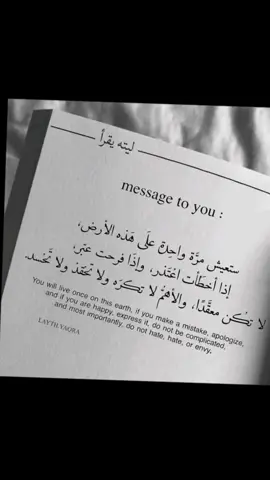 ليته يقرأ
message to you :
ستعيش مرَّة واحِدة علَى هَذه الأرض،
إذا أخطَأت اعْتَذر، وإذَا فرحت عبّر،
لا تكُن معقَّدًا، والأهمُّ لا تكرَه ولا تحقد ولا تَحسد.
You will live once on this earth, if you make a mistake, apologize,
and if you are happy, express it, do not be complicated,
and most importantly, do not hate, hate, or envy.
LAYTH YAQRA